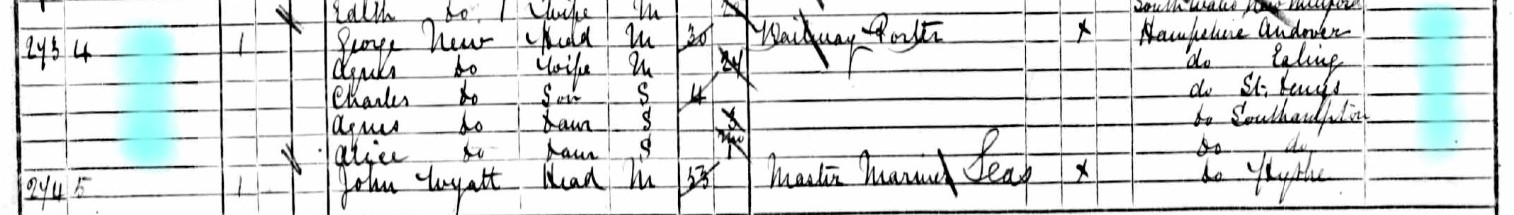 Edith do Wife M South Wales New Milford
273 4 1 George New Head M 30 Railway Porter x Hampshire Andover
Agnes do Wife M 24 do Ealing
Charles do Son S 4 do St. Denys
Agnes do Daur S 3 do Southampton
Alice do Daur S do do
274 5 1 John Wyatt Head M 53 Master Mariner Seas x do Hythe